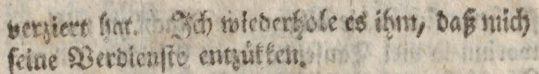 verziert hat. Ich wiederhole es ihm, daß mich
seine Verdienste entzükken.